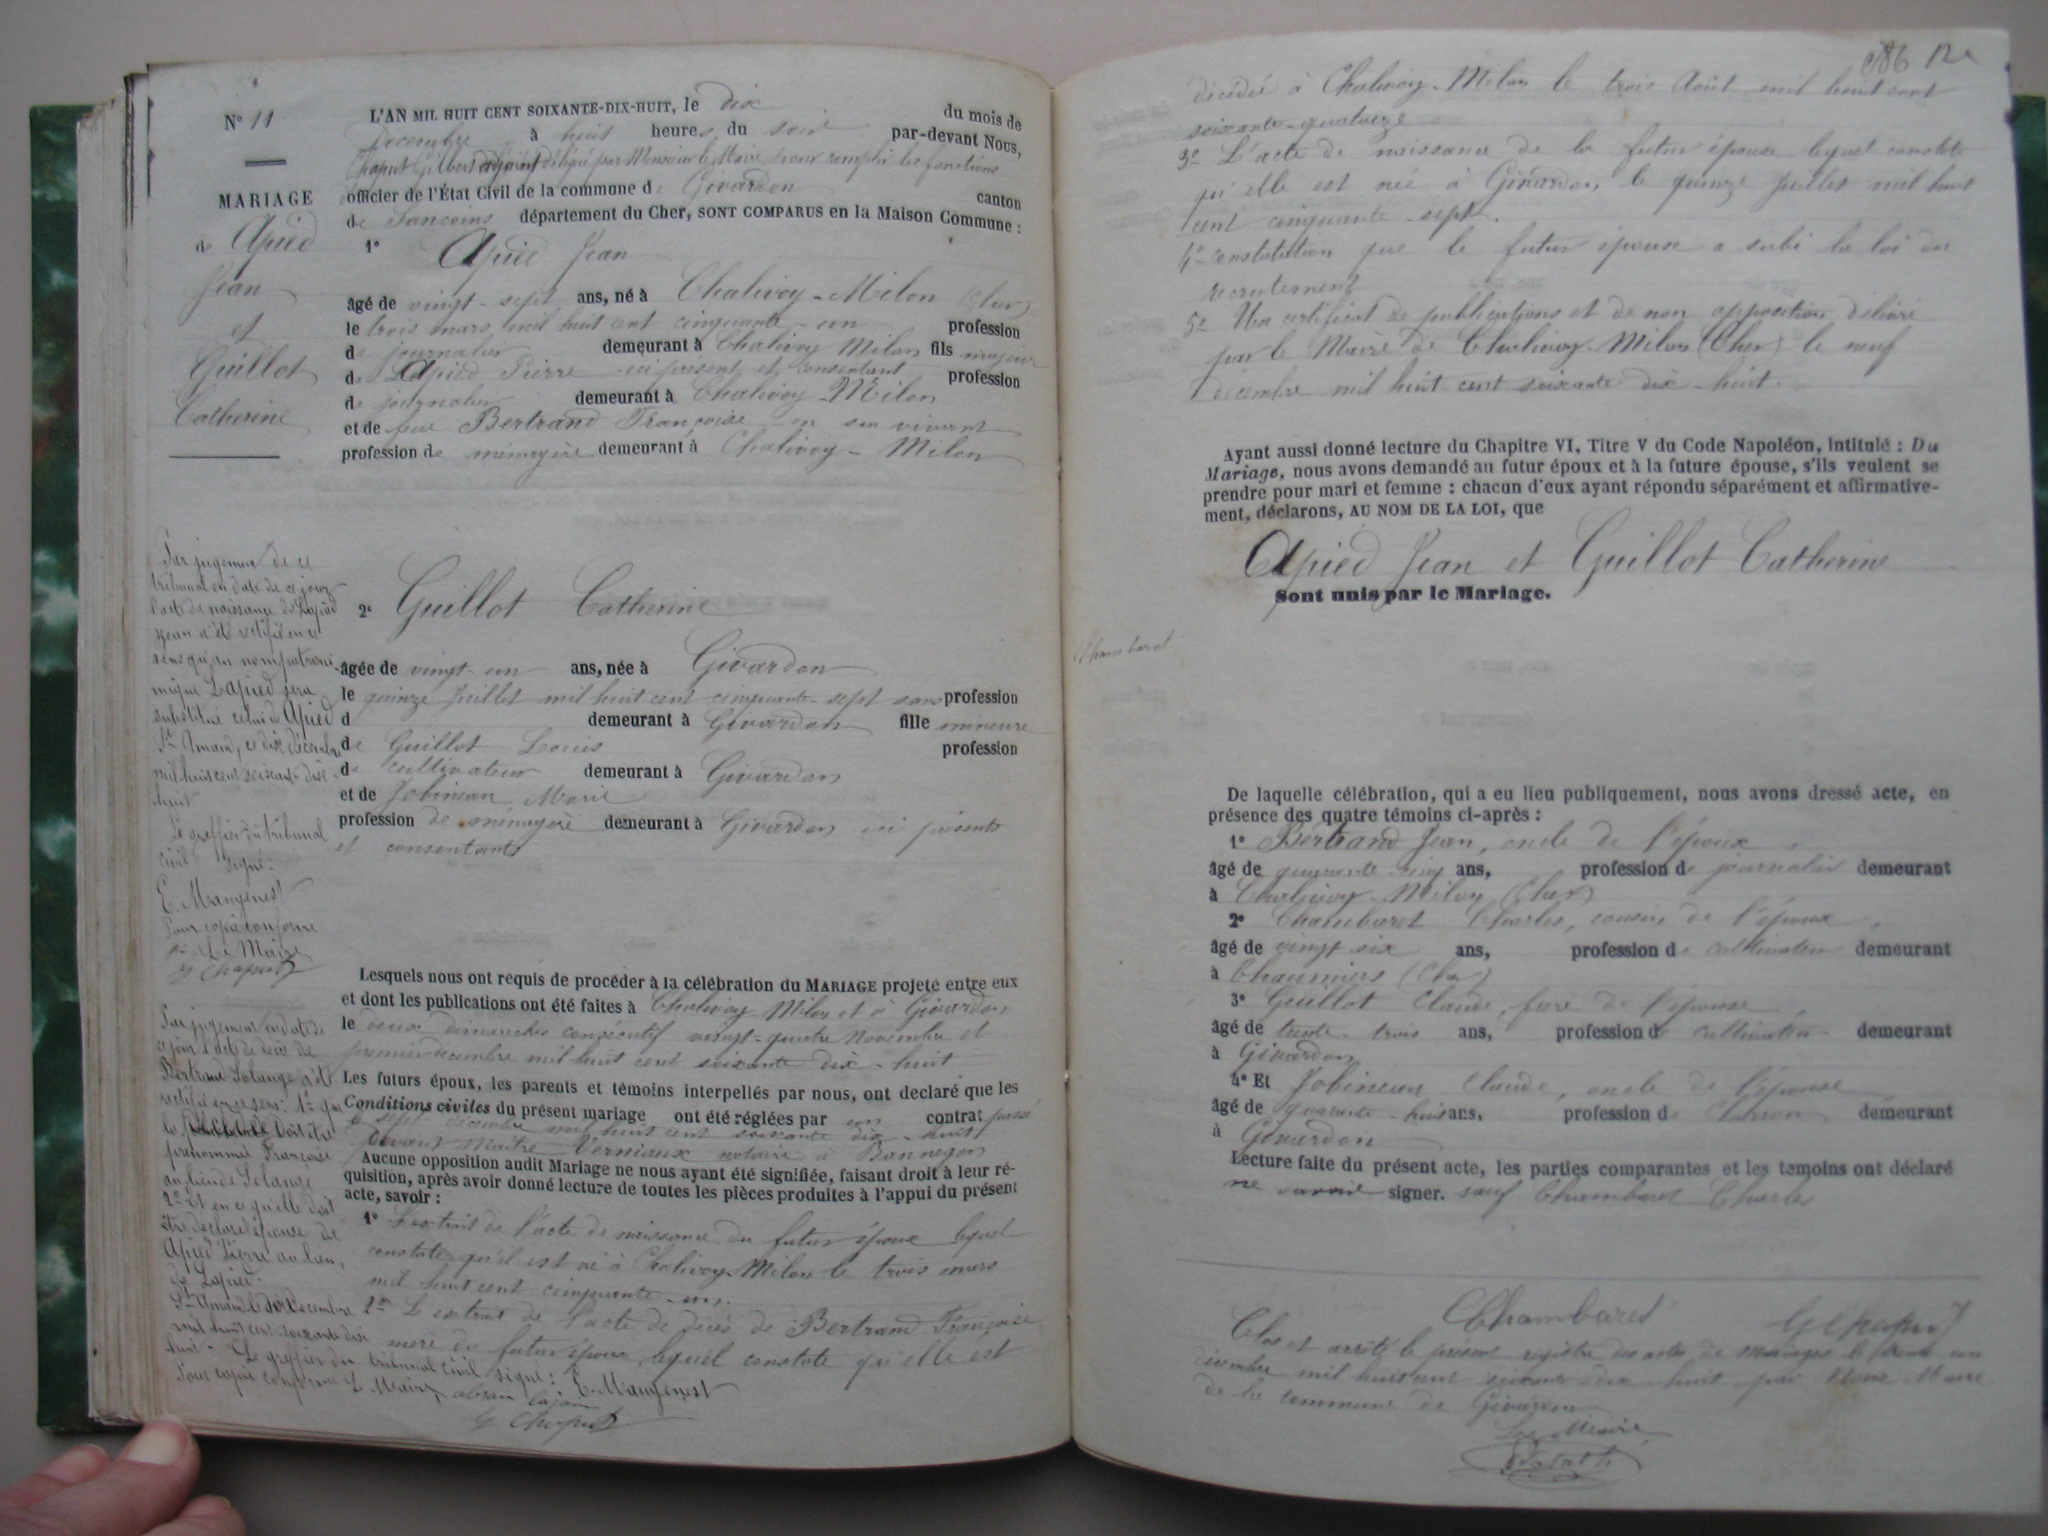 N° 11
MARIAGE
de Apied
Jean
et
Guillot
Catherine
L'AN MIL HUIT CENT SOIXANTE-DIX-HUIT, le dix du mois de
Decembre à huit heures du soir par-devant Nous,
Chaput Gilbert adjoint délégué par Monsieur le Maire pour remplir les fonctions
officier de l'État Civil de la commune de Givardon canton
de Sancoins département du Cher, SONT COMPARUS en la Maison Commune :
1° Apied Jean
âgé de vingt-sept ans, né à Chalivoy-Milon (Cher)
le trois mars mil huit cent cinquante-un profession
de journalier demeurant à Chalivoy Milon fils majeur
de Lapied Pierre ici présent et consentant profession
de journalier demeurant à Chalivoy Milon
et de feue Bertrand Françoise en son vivant
profession de ménagère demeurant à Chalivoy-Milon
2° Guillot Catherine
âgée de vingt-un ans, née à Givardon
le quinze Juillet mil huit cent cinquante-sept sans profession
d demeurant à Givardon fille mineure
de Guillot Louis profession
de cultivateur demeurant à Givardon
et de Jobineau Marie
profession de ménagère demeurant à Givardon ici présents
et consentants
Lesquels nous ont requis de procéder à la célébration du MARIAGE projeté entre eux
et dont les publications ont été faites à Chalivoy-Milon et à Givardon
le deux dimanches consécutif vingt-quatre Novembre et
premier décembre mil huit cent soixante dix-huit
Les futurs époux, les parents et témoins interpellés par nous, ont declaré que les
Conditions civiles du présent mariage ont été réglées par un contrat passé
le sept decembre mil huit cent soixante dix-huit
devant Maître Verniaux notaire à Bannegon
Aucune opposition audit Mariage ne nous ayant été signifiée, faisant droit à leur ré-
quisition, après avoir donné lecture de toutes les pièces produites à l'appui du présent
acte, savoir :
1° L'extrait de l'acte de naissance du futur époux lequel
constate qu'il est né à Chalivoy-Milon le trois mars
mil huit cent cinquante-un.
2° L'extrait de l'acte de décès de Bertrand Françoise,
mère du futur époux, lequel constate qu'elle est
Par jugement de ce
tribunal en date de ce jour
l'acte de naissance de Lapied
Jean a été rectifié en ce
sens qu'au nom patroni-
mique Lapied sera
substitué celui de Apied
St Amand, ce dix décembre
mil huit cent soixante dix
huit
Le greffier du tribunal
civil signé:
E. Mangenest
Pour copie conforme
Le Maire
G Chaput
Par jugement en date de
ce jour l'acte de décès de
Bertrand Solange a été
rectifié en ce sens: 1° que
la doit être
prénommée Françoise
au lieu de Solange
2° Et en ce qu'elle doit
être déclarée épouse de
Apied Pierre au lieu,
de Lapied.
St Amand le dix décembre
mil huit cent soixante dix
huit - Le greffier du tribunal civil signé: E. Mangenest
Pour copie conforme Le Maire,
G Chaput
décédée à Chalivoy-Milon le trois Août mil huit cent
soixante-quatorze
3° L'acte de naissance de la futur épouse lequel constate
qu'elle est née à Givardon, le quinze Juillet mil huit
cent cinquante-sept.
4° constatation que le futur époux a subi la loi du
recrutement
5° Un certificat de publications et de non opposition délivré
par le Maire de Chalivoy-Milon (Cher) le neuf
décembre mil huit cent soixante dix-huit.
Ayant aussi donné lecture du Chapitre VI, Titre V du Code Napoléon, intitulé : Du
Mariage, nous avons demandé au futur époux et à la future épouse, s'ils veulent se
prendre pour mari et femme : chacun d'eux ayant répondu séparément et affirmative-
ment, déclarons, AU NOM DE LA LOI, que
Apied Jean et Guillot Catherine
Sont unis par le Mariage.
Chambaret
De laquelle célébration, qui a eu lieu publiquement, nous avons dressé acte, en
présence des quatre témoins ci-après :
1° Bertrand Jean, oncle de l'époux,
âgé de quarante-cinq ans, profession de journalier demeurant
à Chalivoy-Milon (Cher)
2° Chambaret Charles, cousin de l'époux,
âgé de vingt six ans, profession de cultivateur demeurant
à Chaumiers (Cher)
3° Guillot Claude, frère de l'épouse,
âgé de trente-trois ans, profession de cultivateur demeurant
à Givardon
4° Et Jobineau Claude, oncle de l'épouse
âgé de quarante-huit ans, profession de Charron demeurant
à Givardon
Lecture faite du présent acte, les parties comparantes et les temoins ont déclaré
ne savoir signer. sauf Chambaret Charles
Chambaret G Chaput
Clos et arrêté le présent registre des actes de mariages le trente un
décembre mil huit cent soixante-dix huit par Nous Maire
de la commune de Givardon
Le Maire